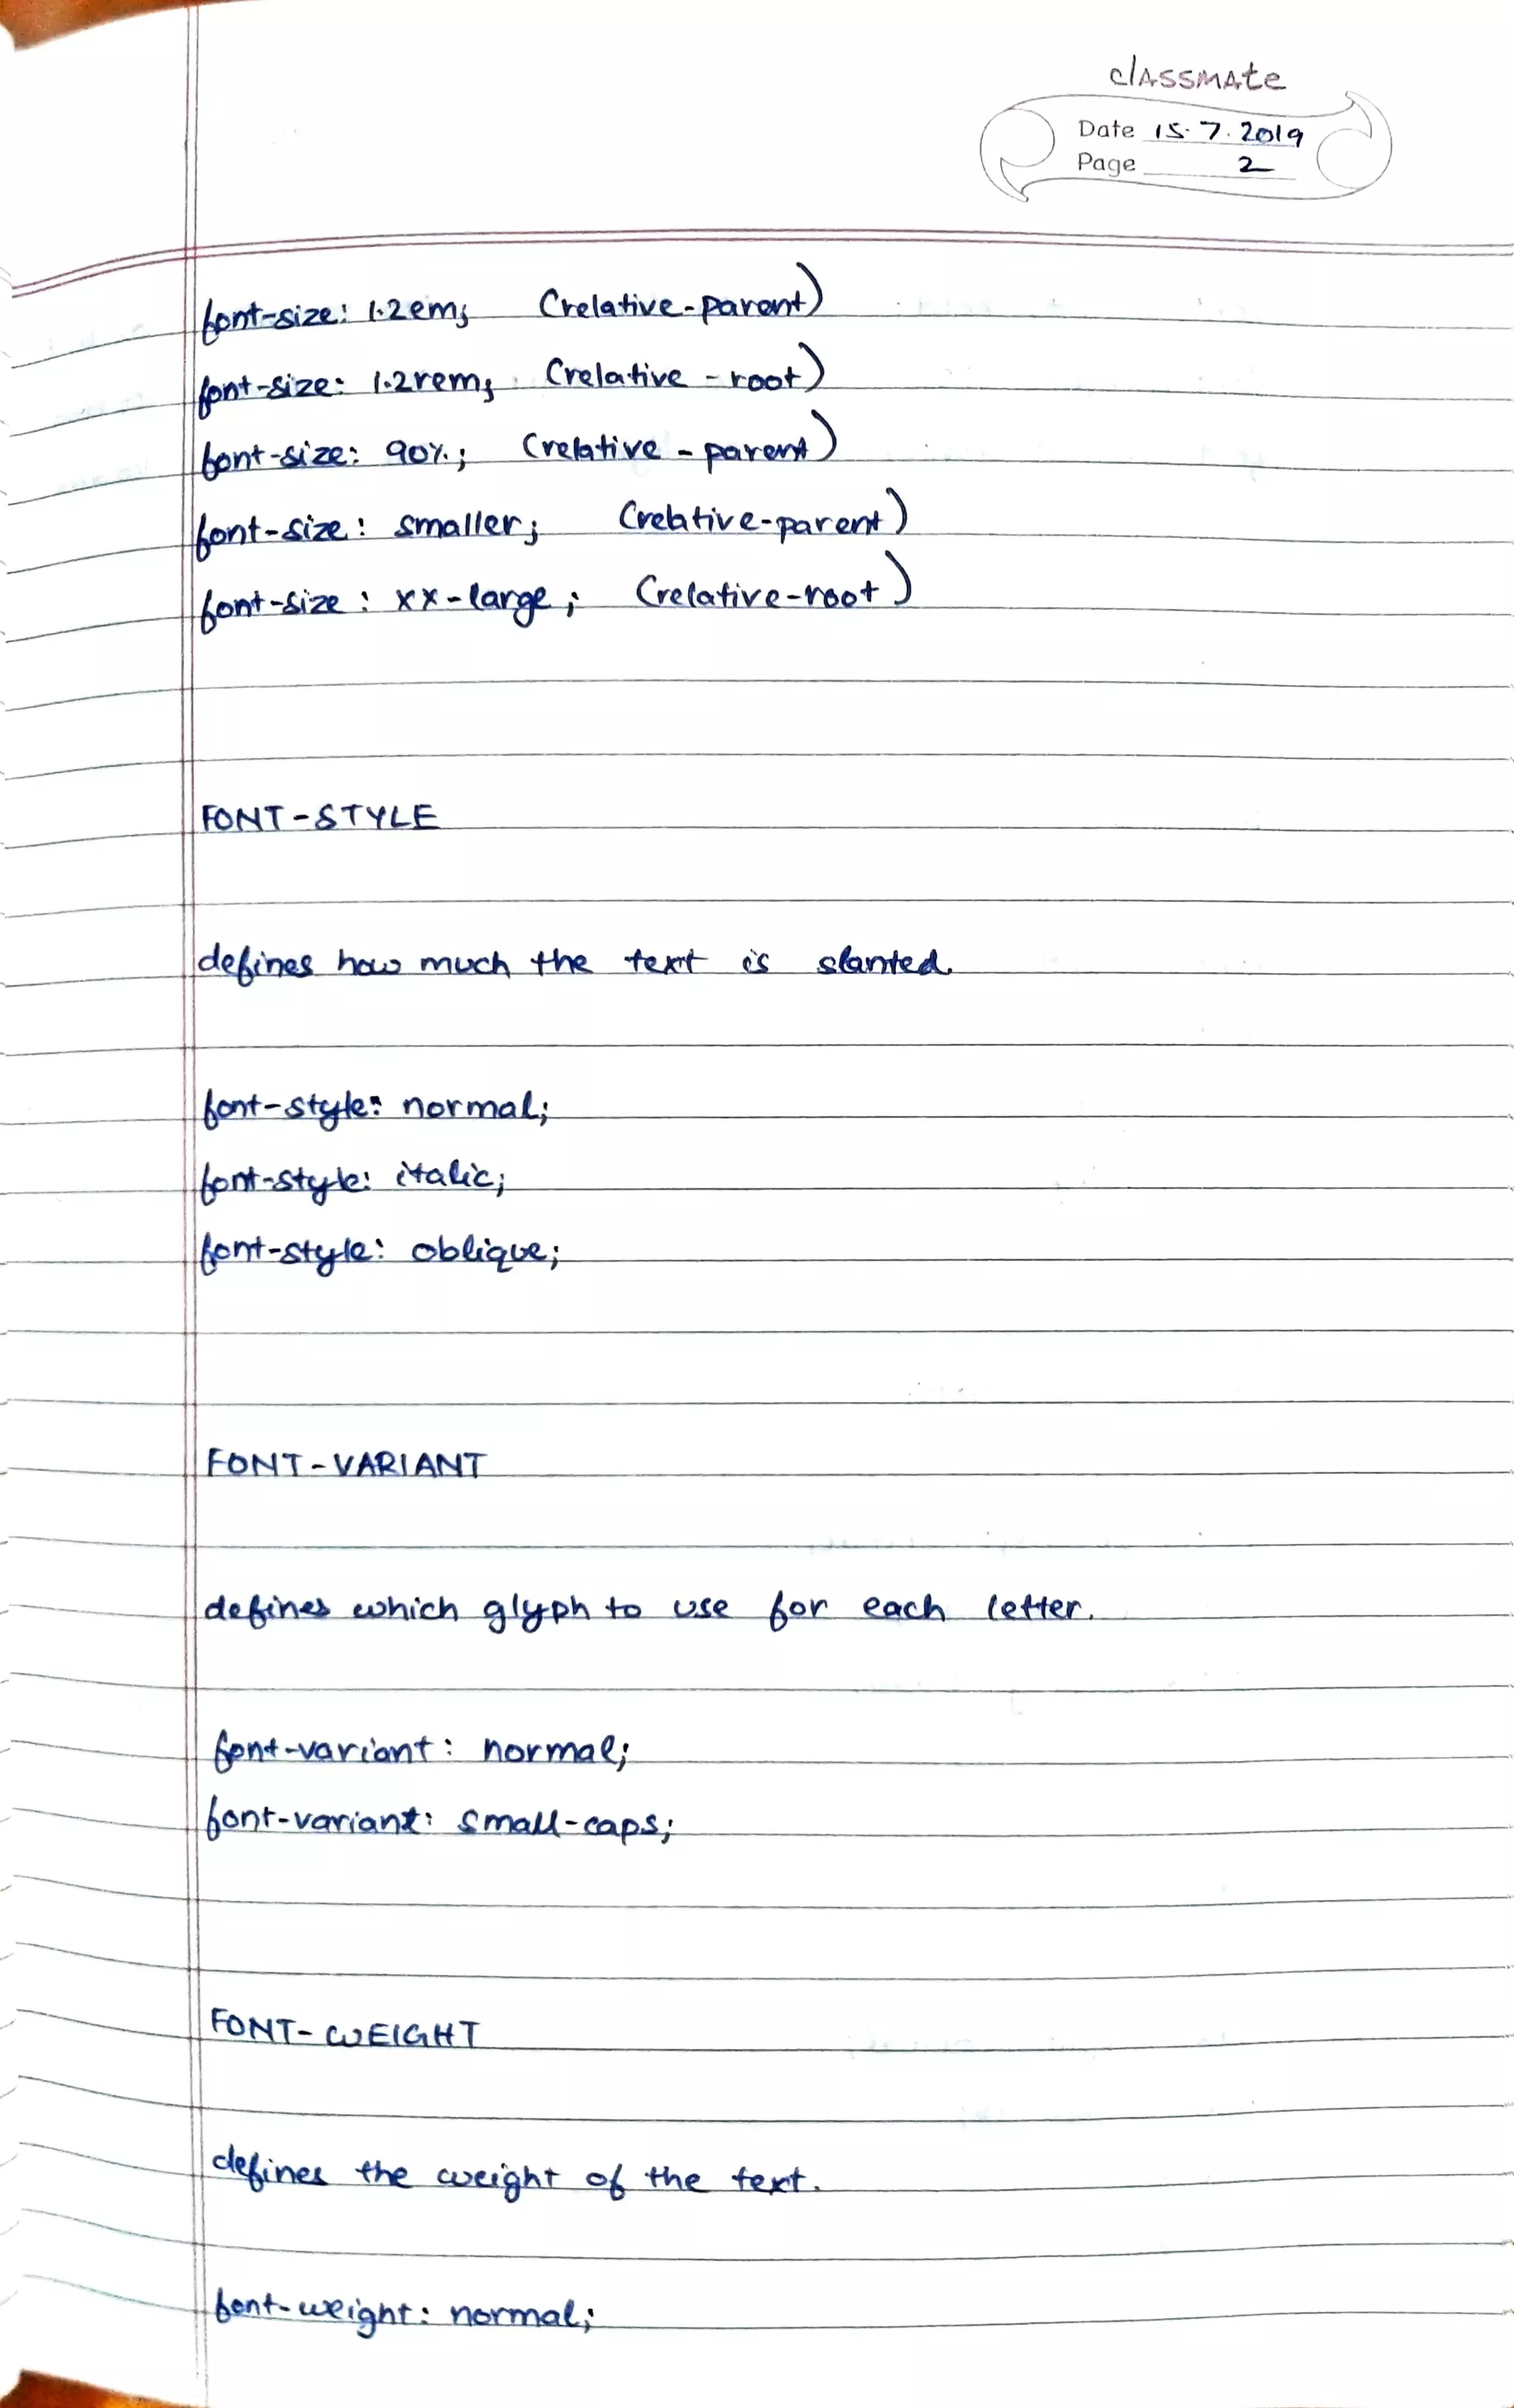 classmate
Date 15.7.2019
Page 2
font-size: 1.2em; (relative-parent)
font-size: 1.2rem; (relative - root)
font-size: 90%; (relative - parent)
font-size: smaller; (relative-parent)
font-size: xx-large; (relative-root)
FONT-STYLE
defines how much the text is slanted.
font-style: normal;
font-style: italic;
font-style: oblique;
FONT-VARIANT
defines which glyph to use for each letter.
font-variant: normal;
font-variant: small-caps;
FONT-WEIGHT
defines the weight of the text.
font-weight: normal;